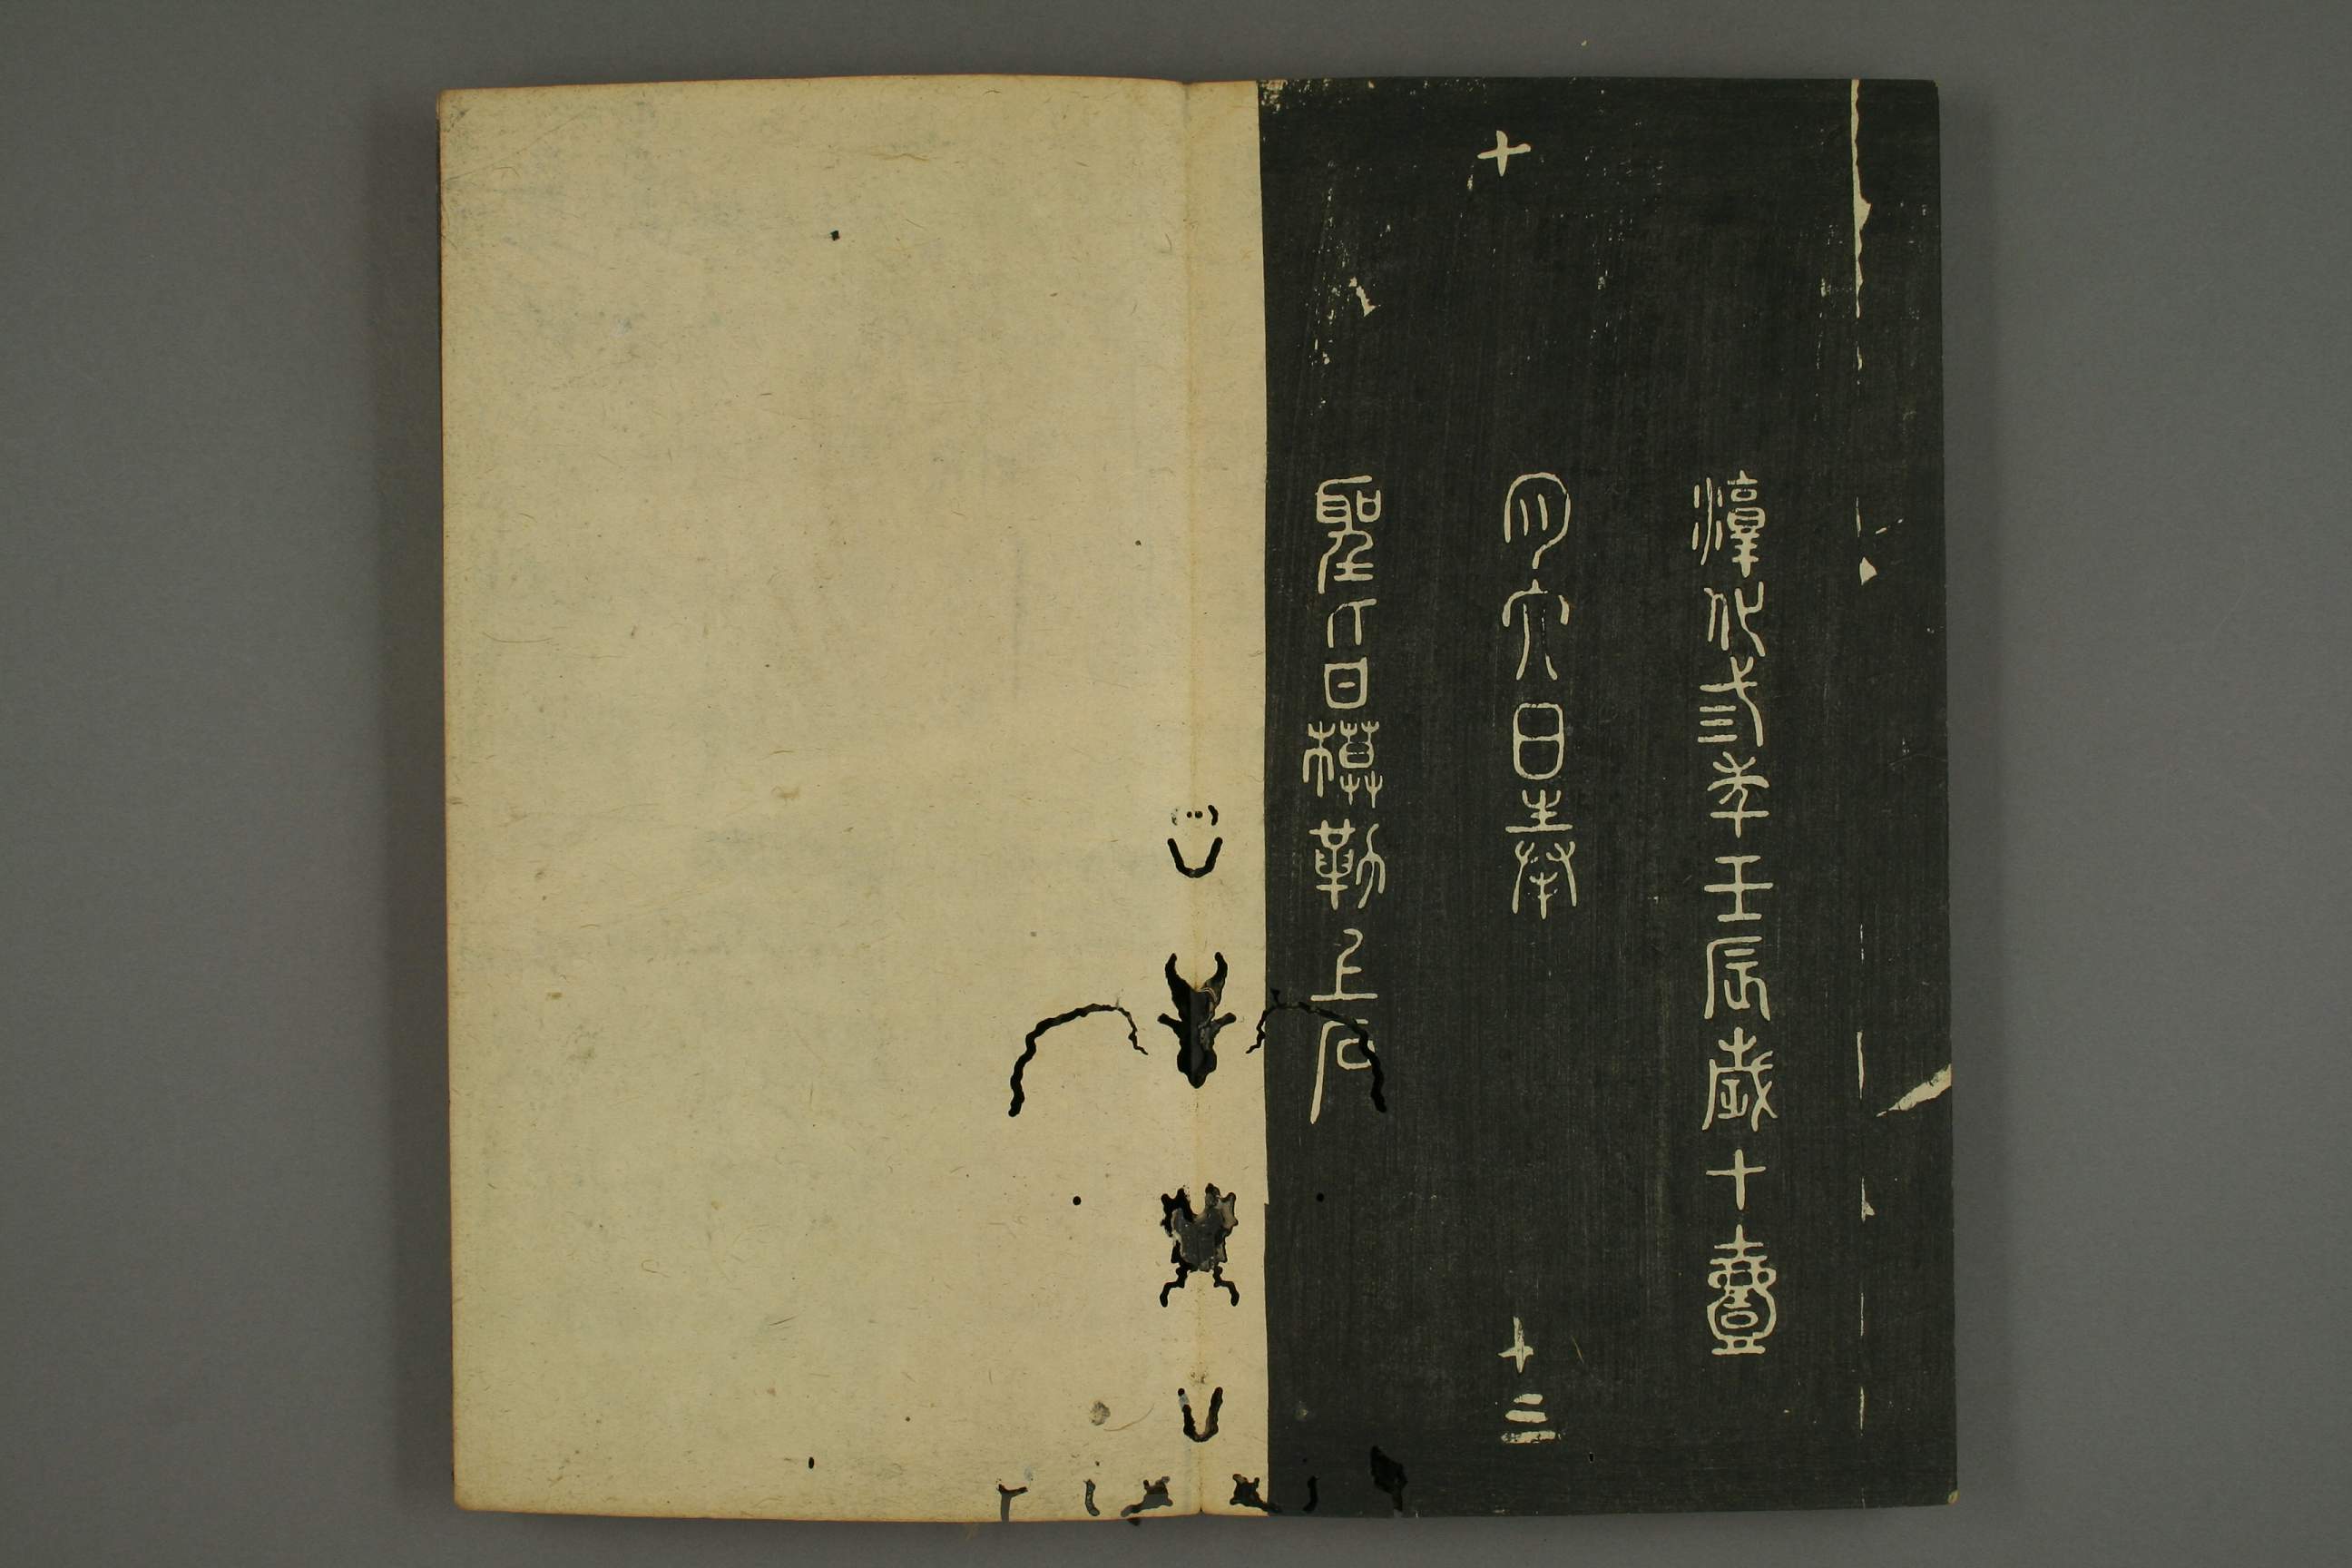 淳化弎年壬辰歲十壹
十
月六日奉
十三
聖旨模勒上石